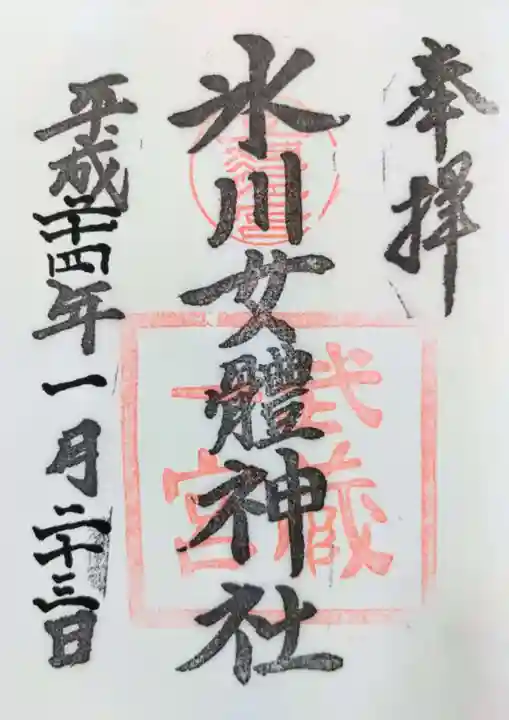 奉拝
氷川女體神社
武蔵
一宮
平成二十四年一月二十三日